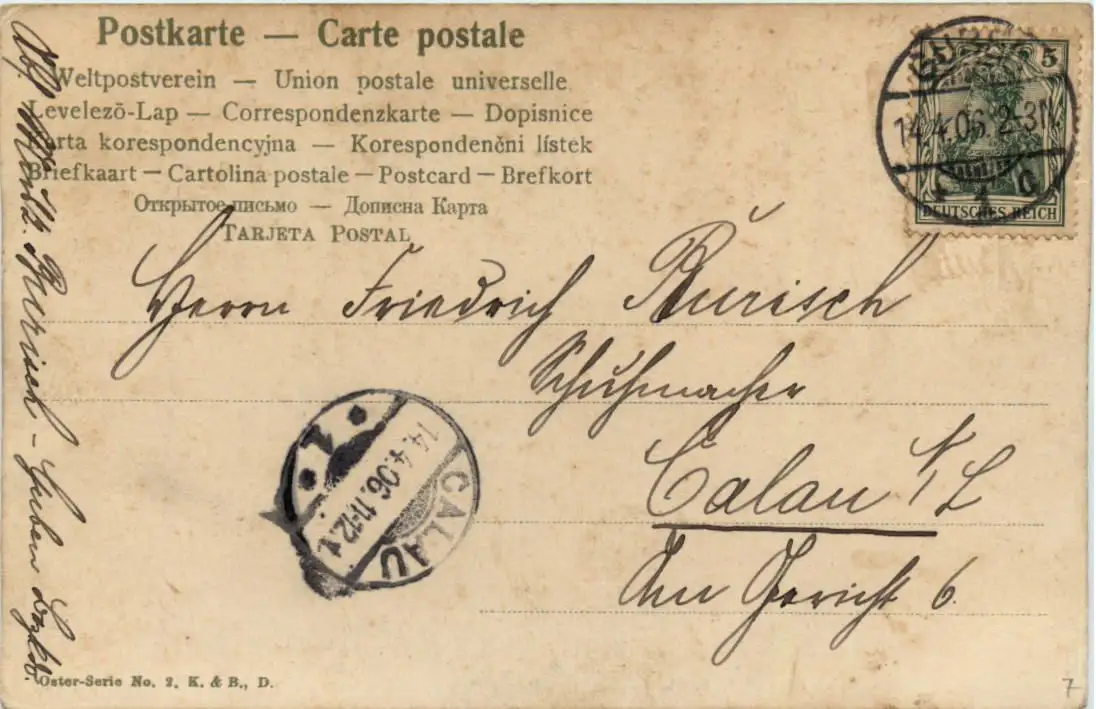 Postkarte — Carte postale
Weltpostverein — Union postale universelle
Levelező-Lap — Correspondenzkarte — Dopisnice
Karta korespondencyjna — Korespondenčni lístek
Briefkaart — Cartolina postale — Postcard — Brefkort
Открытое письмо — Дописна Карта
TARJETA POSTAL
5
GUBEN
14.4.06.2-3N.
1
DEUTSCHES REICH
Herrn Friedrich Rurisch
Schuhmacher
Calau N/L
Am Gericht 6.
CALAU
14.4.06.11-12
1
Rurisch - Guben
Oster-Serie No. 2, K. & B., D.
7